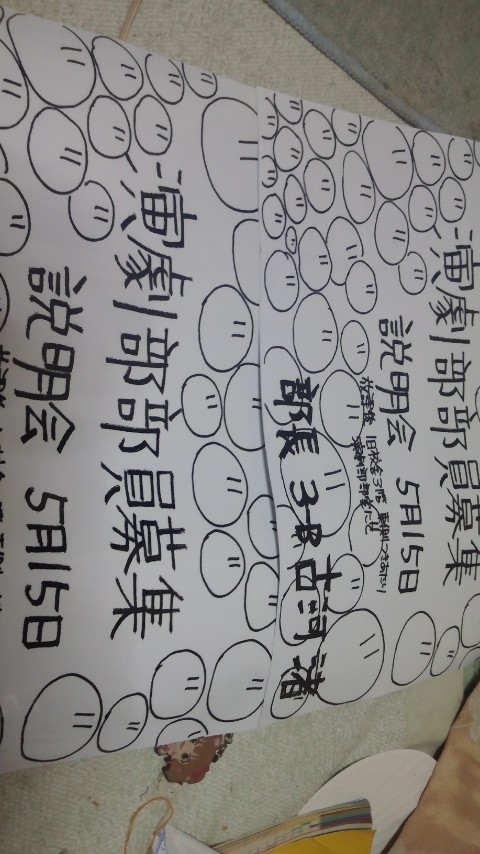 演劇部部員募集
説明会 5月15日
演劇部部員募集
説明会 5月15日
放課後 旧校舎3階 東側つきあたり
演劇部部室にて
部長 3-B 古河 渚